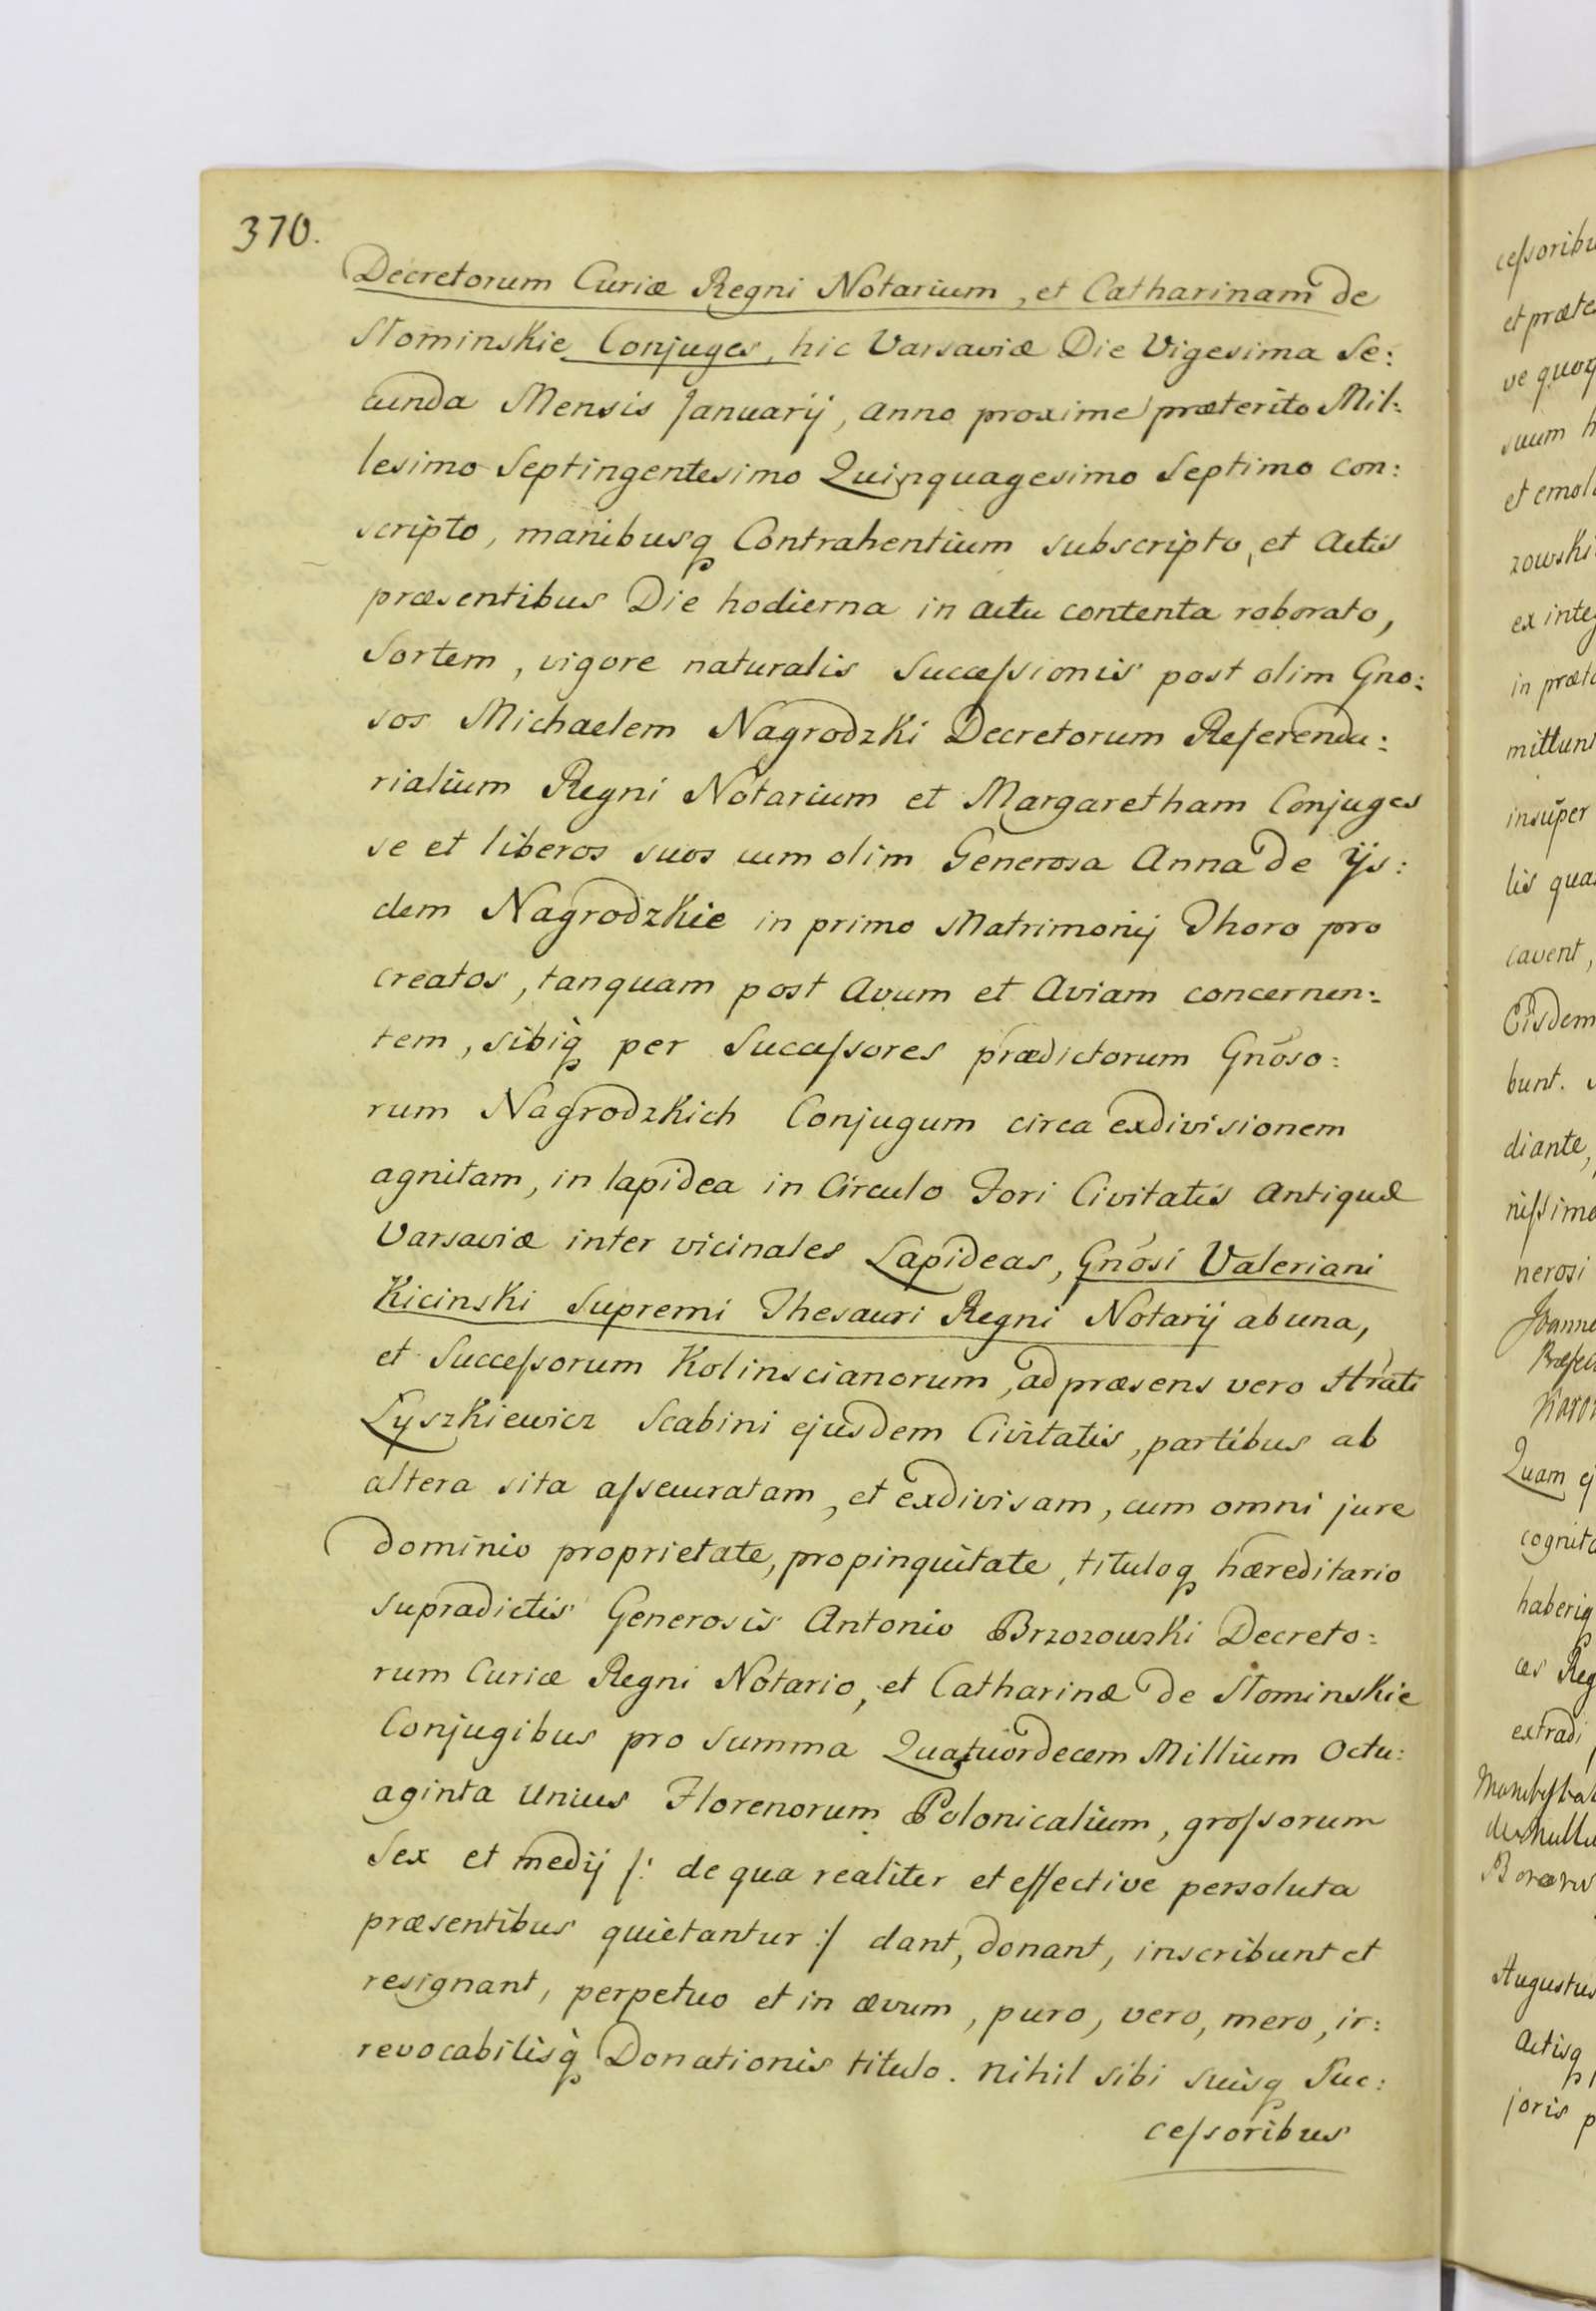 370.
Decretorum Curiæ Regni Notarium, et Catharinam de
Słominskie Conjuges, hic Varsaviæ Die Vigesima Se:
cunda Mensis Januarij, anno proxime præterito Mil:
lesimo Septingentesimo Quinquagesimo Septimo con:
scripto, manibusq Contrahentium subscripto, et Actis
præsentibus Die hodierna in actu contenta roborato,
Sortem, vigore naturalis Succeſsionis post olim Gno:
sos Michaelem Nagrodzki Decretorum Referenda:
rialium Regni Notarium et Margaretham Conjuges
se et liberos suos cum olim Generosa Anna de ijs:
dem Nagrodzkie in primo Matrimonij Thoro pro
creatos, tanquam post Avum et Aviam concernen:
tem, sibiq̀ per Succeſsores prædictorum Gnõso:
rum Nagrodzkich Conjugum circa exdivisionem
agnitam, in lapidea in Circulo Fori Civitatis Antiquæ
Varsaviæ inter vicinales Lapideas, Gnõsi Valeriani
Kicinski Supremi Thesauri Regni Notarij ab una,
et Succeſsorum Kolinscianorum, ad præsens vero
Łyszkiewicz Scabini ejusdem Civitatis, partibus ab
altera sita aſsecuratam, et exdivisam, cum omni jure
dominio proprietate, propinquitate, tituloq hæreditario
supradictis Generosis Antonio Brzozowski Decreto:
rum Curiæ Regni Notario, et Catharinæ de Słominskie
Conjugibus pro Summa Quatuordecem Millium Octu:
aginta Unius Florenorum Polonicalium, groſsorum
Sex et medij /: de qua realiter et effective persoluta
præsentibus quietantur :/ dant, donant, inscribunt et
resignant, perpetuo et in ævum, puro, vero, mero, ir:
revocabilisq̀ Donationis titulo. Nihil sibi suisq Suc:
ceſsoribus
ceſsoribu
et præte
ve quoq
suum h
et emol
zowski
ex inte
in præt
mittun
insuper
lis qua
cavent,
Eisdem
bunt.
diante,
niſsimo
nerosi
Joanne
Quam ej
cognit
haberiq
ces Reg
extradi
Augustus
Actisq
joris p